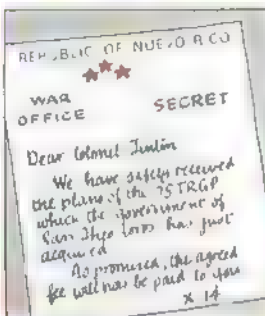 REPUBLIC OF NUEVO RICO
WAR
OFFICE
SECRET
Dear Colonel Tintin
We have safely received
the plans of the 75 TRGP
which the government of
San Theodoros has just
acquired
As promised, the agreed
fee will now be paid to you
X 14